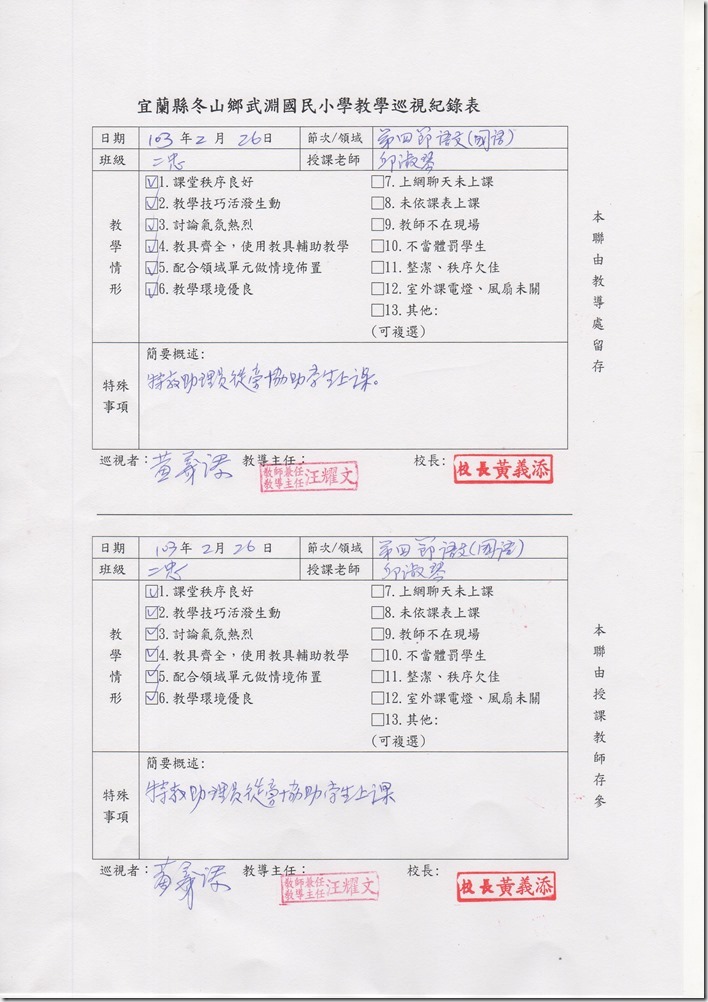 宜蘭縣冬山鄉武淵國民小學教學巡視紀錄表
日期 103年2月26日 節次/領域 第四節語文(國語)
班級 二忠 授課老師 邱淑琴
教學情形
☑1.課堂秩序良好 □7.上網聊天未上課
☑2.教學技巧活潑生動 □8.未依課表上課
☑3.討論氣氛熱烈 □9.教師不在現場
☑4.教具齊全,使用教具輔助教學 □10.不當體罰學生
☑5.配合領域單元做情境佈置 □11.整潔、秩序欠佳
☑6.教學環境優良 □12.室外課電燈、風扇未關
□13.其他:
(可複選)
特殊事項
簡要概述:
特教助理員從旁協助學生上課。
巡視者:黃義添 教導主任: 教師兼任教導主任汪耀文 校長: 校長黃義添
本聯由教導處留存
日期 103年2月26日 節次/領域 第四節語文(國語)
班級 二忠 授課老師 邱淑琴
教學情形
☑1.課堂秩序良好 □7.上網聊天未上課
☑2.教學技巧活發生動 □8.未依課表上課
☑3.討論氣氛熱烈 □9.教師不在現場
☑4.教具齊全,使用教具輔助教學 □10.不當體罰學生
☑5.配合領域單元做情境佈置 □11.整潔、秩序欠佳
☑6.教學環境優良 □12.室外課電燈、風扇未關
□13.其他:
(可複選)
特殊事項
簡要概述:
特教助理員從旁協助學生上課
巡視者:黃義添 教導主任: 教師兼任教導主任汪耀文 校長: 校長黃義添
本聯由授課教師存參